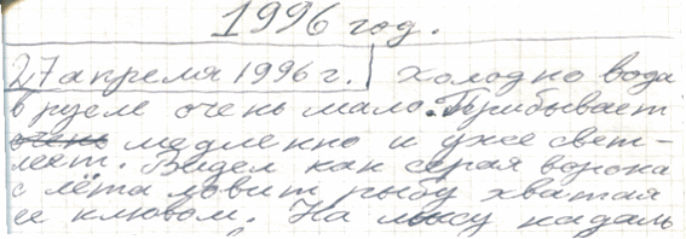 1996 год.
27 апреля 1996 г. Холодно вода
в русле очень мало. Прибывает
очень медленно и уже свет-
леет. Видел как серая ворона
с лёта ловит рыбу хватая
её клювом. На мысу падаль